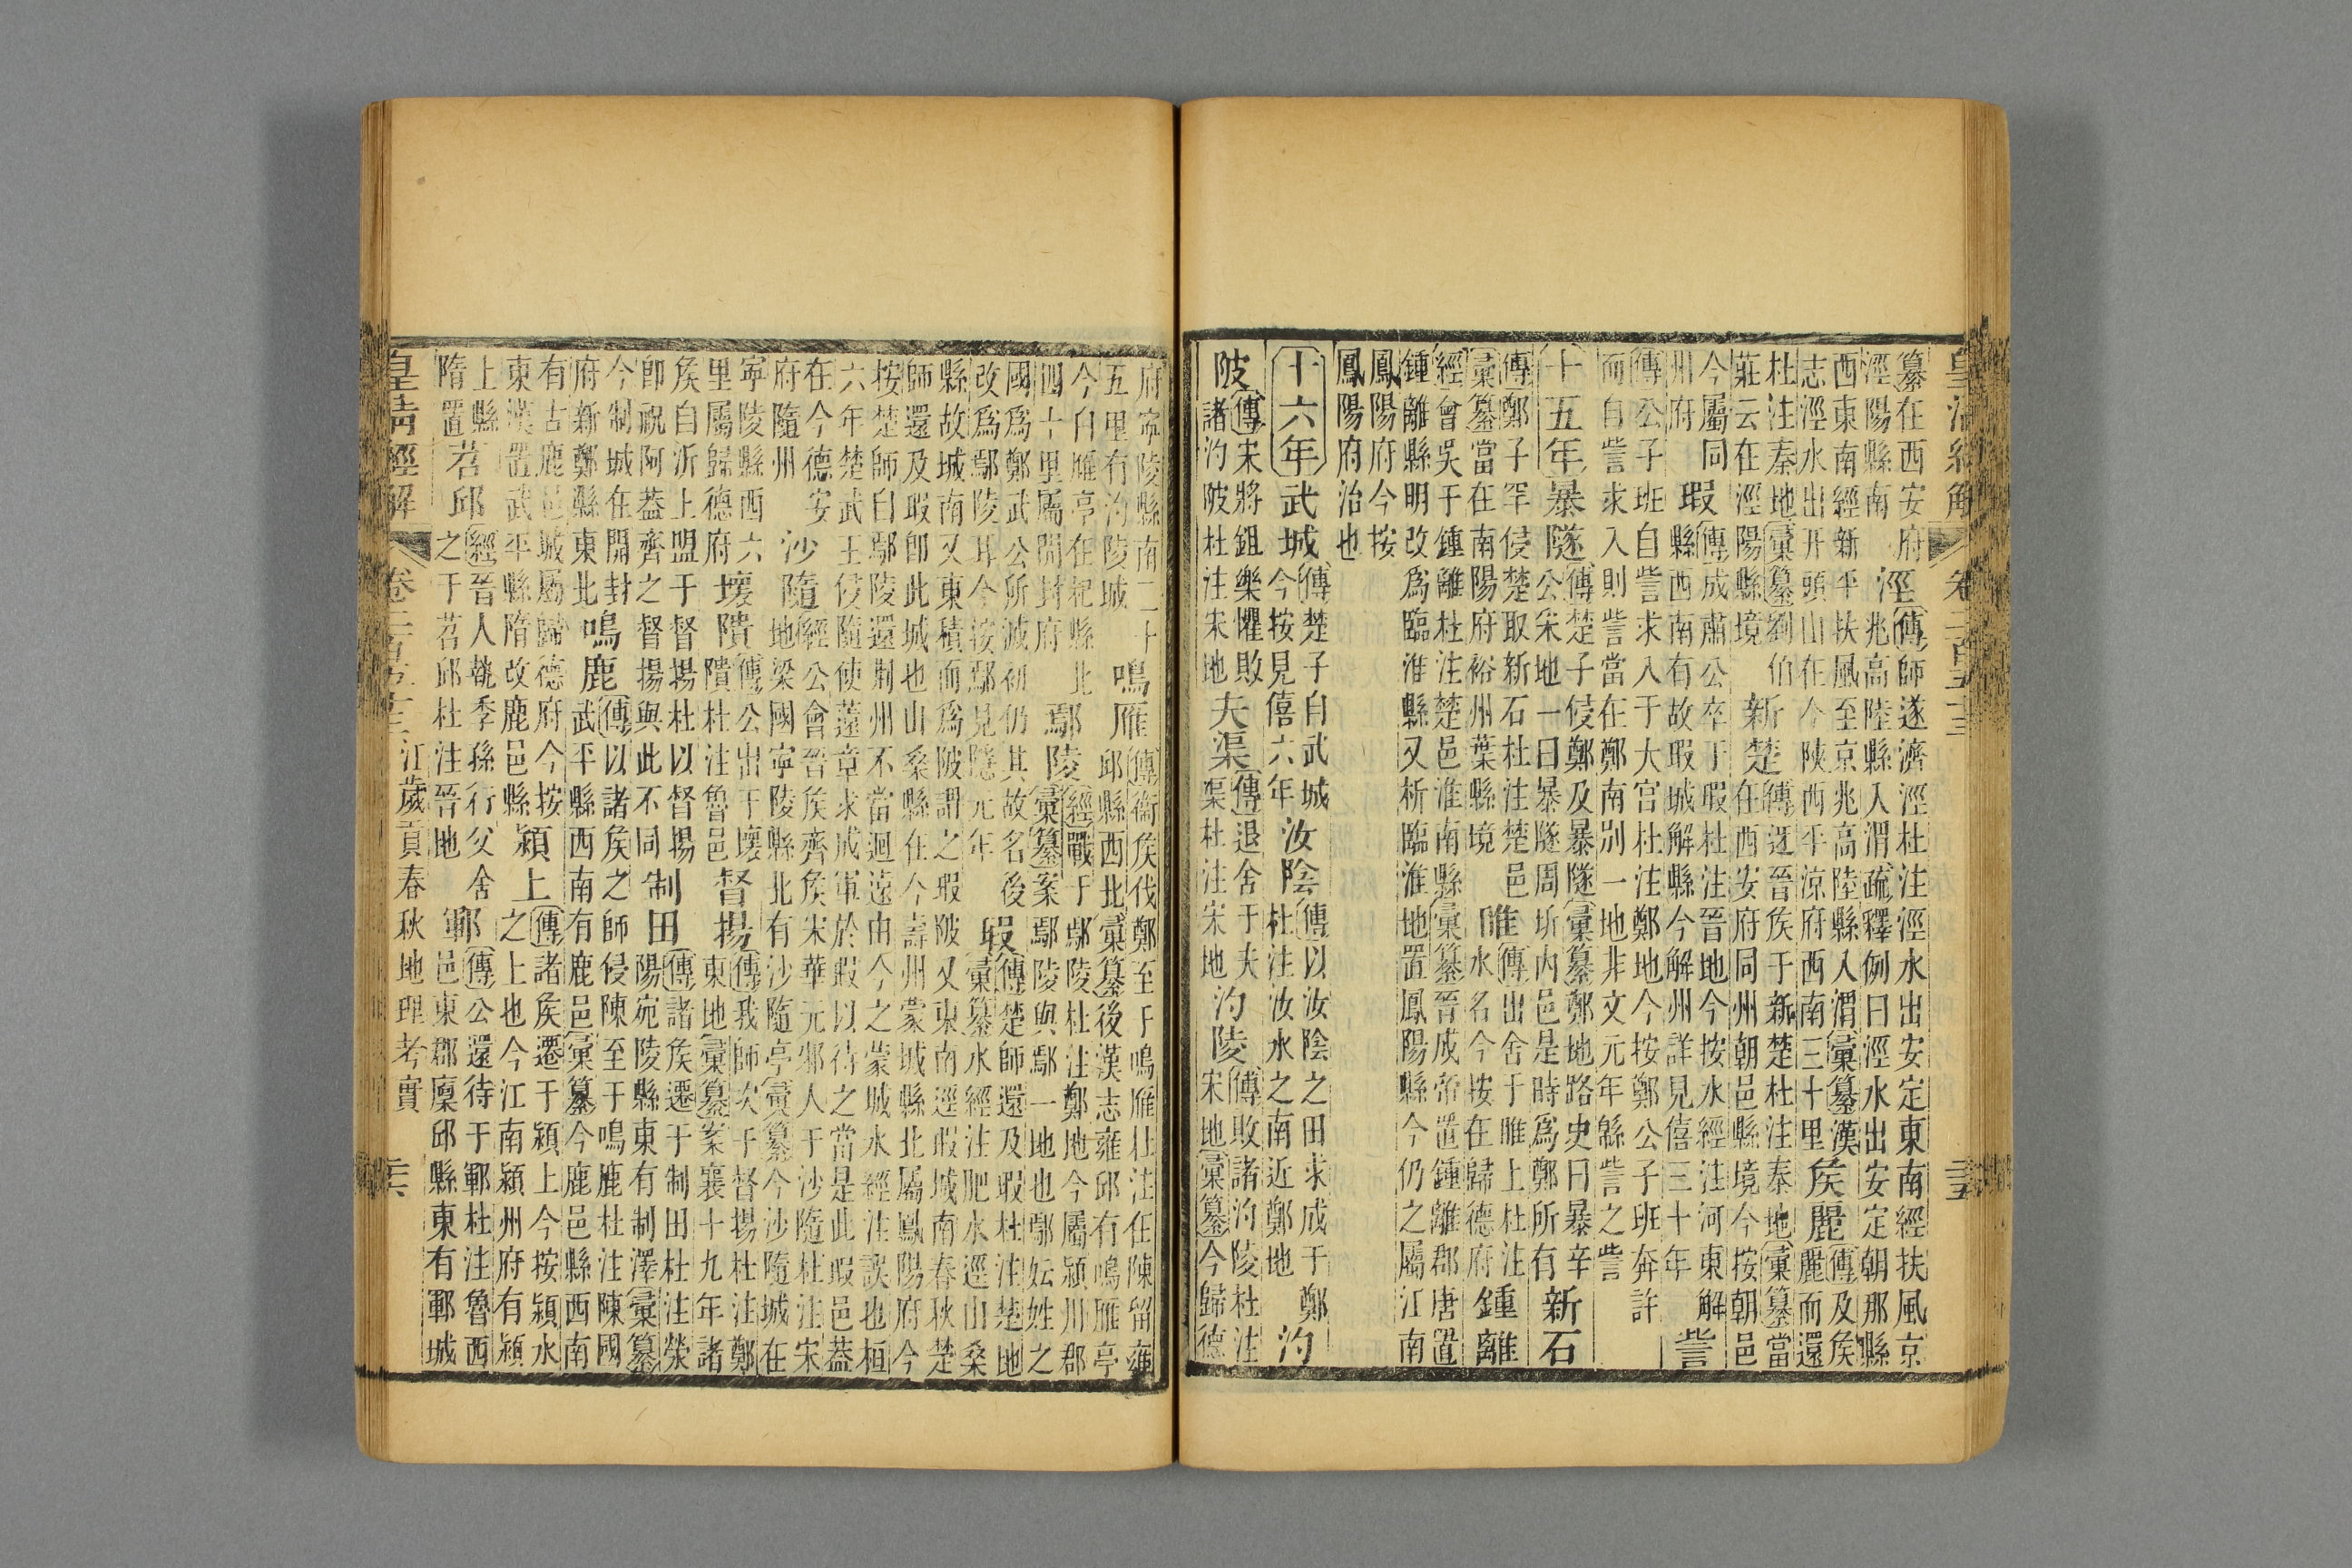 皇清經解 卷二百五十三 三五
纂在西安府 涇 傳師遂濟涇杜注涇水出安定東南經扶風京
涇陽縣南 兆高陸縣入渭疏釋例曰涇水出安定朝那縣
西東南經新平扶風至京兆高陸縣入渭彙纂漢 侯麗 傳及侯
志涇水出开頭山在今陝西平涼府西南三十里 麗而還
杜注秦地彙纂劉伯 新楚 傳迓晉侯于新楚杜注秦地彙纂當
莊云在涇陽縣境 在西安府同州朝邑縣境今按朝邑
今屬同 瑕 傳成肅公卒于瑕杜注晉地今按水經注河東解
州府 縣西南有故瑕城解縣今解州詳見僖三十年 訾
傳公子班自訾求入于大宮杜注鄭地今按鄭公子班奔許
而自訾求入則訾當在鄭南別一地非文元年緜訾之訾
十五年 暴隧 傳楚子侵鄭及暴隧彙纂鄭地路史曰暴辛
公采地一曰暴隧周圻內邑是時爲鄭所有 新石
傳鄭子罕侵楚取新石杜注楚邑 睢 傳出舍于睢上杜注
彙纂當在南陽府裕州葉縣境 水名今按在歸德府 鍾離
經會吳于鍾離杜注楚邑淮南縣彙纂晉成帝置鍾離郡唐置
鍾離縣明改爲臨淮縣又析臨淮地置鳳陽縣今仍之屬江南
鳳陽府今按
鳳陽府治也
十六年 武城 傳楚子自武城 汝陰 傳以汝陰之田求成于鄭
今按見僖六年 杜注汝水之南近鄭地 汋
陂 傳宋將鉏樂懼敗 夫渠 傳退舍于夫 汋陵 傳敗諸汋陵杜注
諸汋陂杜注宋地 渠杜注宋地 宋地彙纂今歸德
府寧陵縣南二十 鳴雁 傳衞侯伐鄭至于鳴雁杜注在陳留雍
五里有汋陵城 邱縣西北彙纂後漢志雍邱有鳴雁亭
今白雁亭在杞縣北 鄢陵 經戰于鄢陵杜注鄭地今屬潁川郡
四十里屬開封府 彙纂案鄢陵與鄢一地也鄢妘姓之
國爲鄭武公所滅初仍其故名後 瑕 傳楚師還及瑕杜注楚地
改爲鄢陵耳今按鄢見隱元年 彙纂水經注肥水逕山桑
縣故城南又東積而爲陂謂之瑕陂又東南逕瑕城南春秋楚
師還及瑕卽此城也山桑縣在今壽州蒙城縣北屬鳳陽府今
按楚師自鄢陵還荆州不當迴遠由今之蒙城水經注誤也桓
六年楚武王侵隨使薳章求成軍於瑕以待之當是此瑕邑蓋
在今德安 沙隨 經公會晉侯齊侯宋華元邾人于沙隨杜注宋
府隨州 地梁國寧陵縣北有沙隨亭彙纂今沙隨城在
寧陵縣西六 壞隤 傳公出于壞 督揚 傳我師次于督揚杜注鄭
里屬歸德府 隤杜注魯邑 東地彙纂案襄十九年諸
侯自沂上盟于督揚杜以督揚 制田 傳諸侯遷于制田杜注滎
卽祝阿蓋齊之督揚與此不同 陽宛陵縣東有制澤彙纂
今制城在開封 鳴鹿 傳以諸侯之師侵陳至于鳴鹿杜注陳國
府新鄭縣東北 武平縣西南有鹿邑彙纂今鹿邑縣西南
有古鹿邑城屬歸德府今按 潁上 傳諸侯遷于潁上今按潁水
東漢置武平縣隋改鹿邑縣 之上也今江南潁州府有潁
上縣 苕邱 經晉人執季孫行父舍 鄆 傳公還待于鄆杜注魯西
隋置 之于苕邱杜注晉地 邑東郡廩邱縣東有鄆城
皇清經解 卷二百五十三 江歲貢春秋地理考實 三六